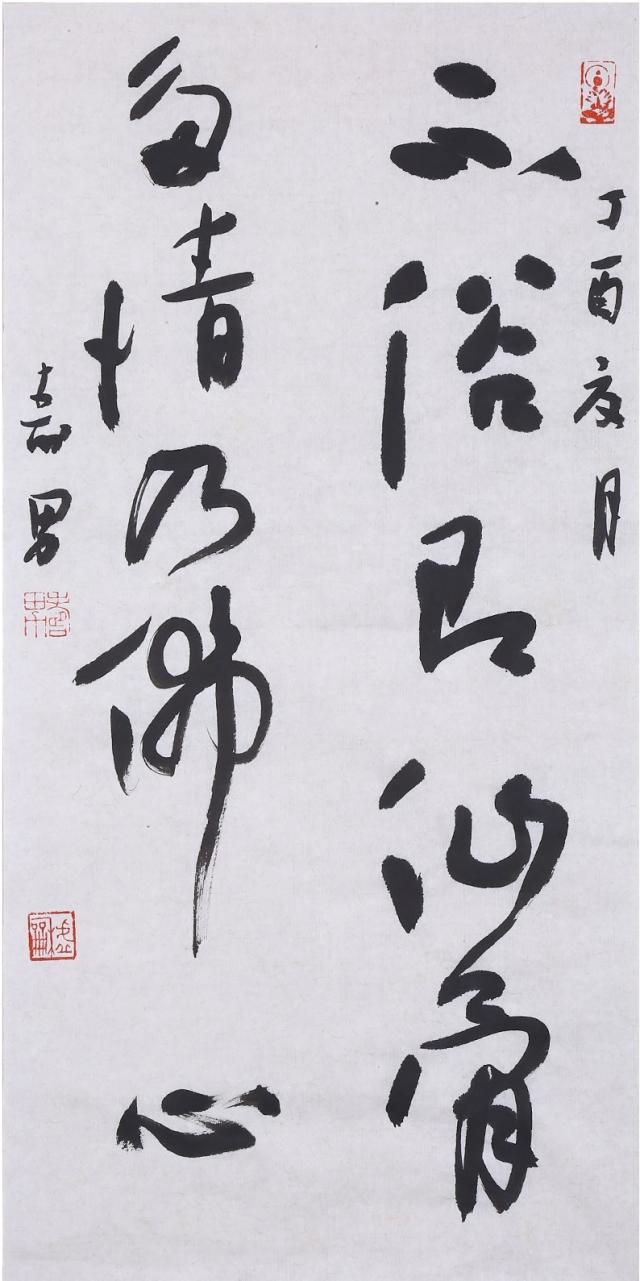 丁酉夏月
不俗即仙骨
多情乃佛心
嘉男